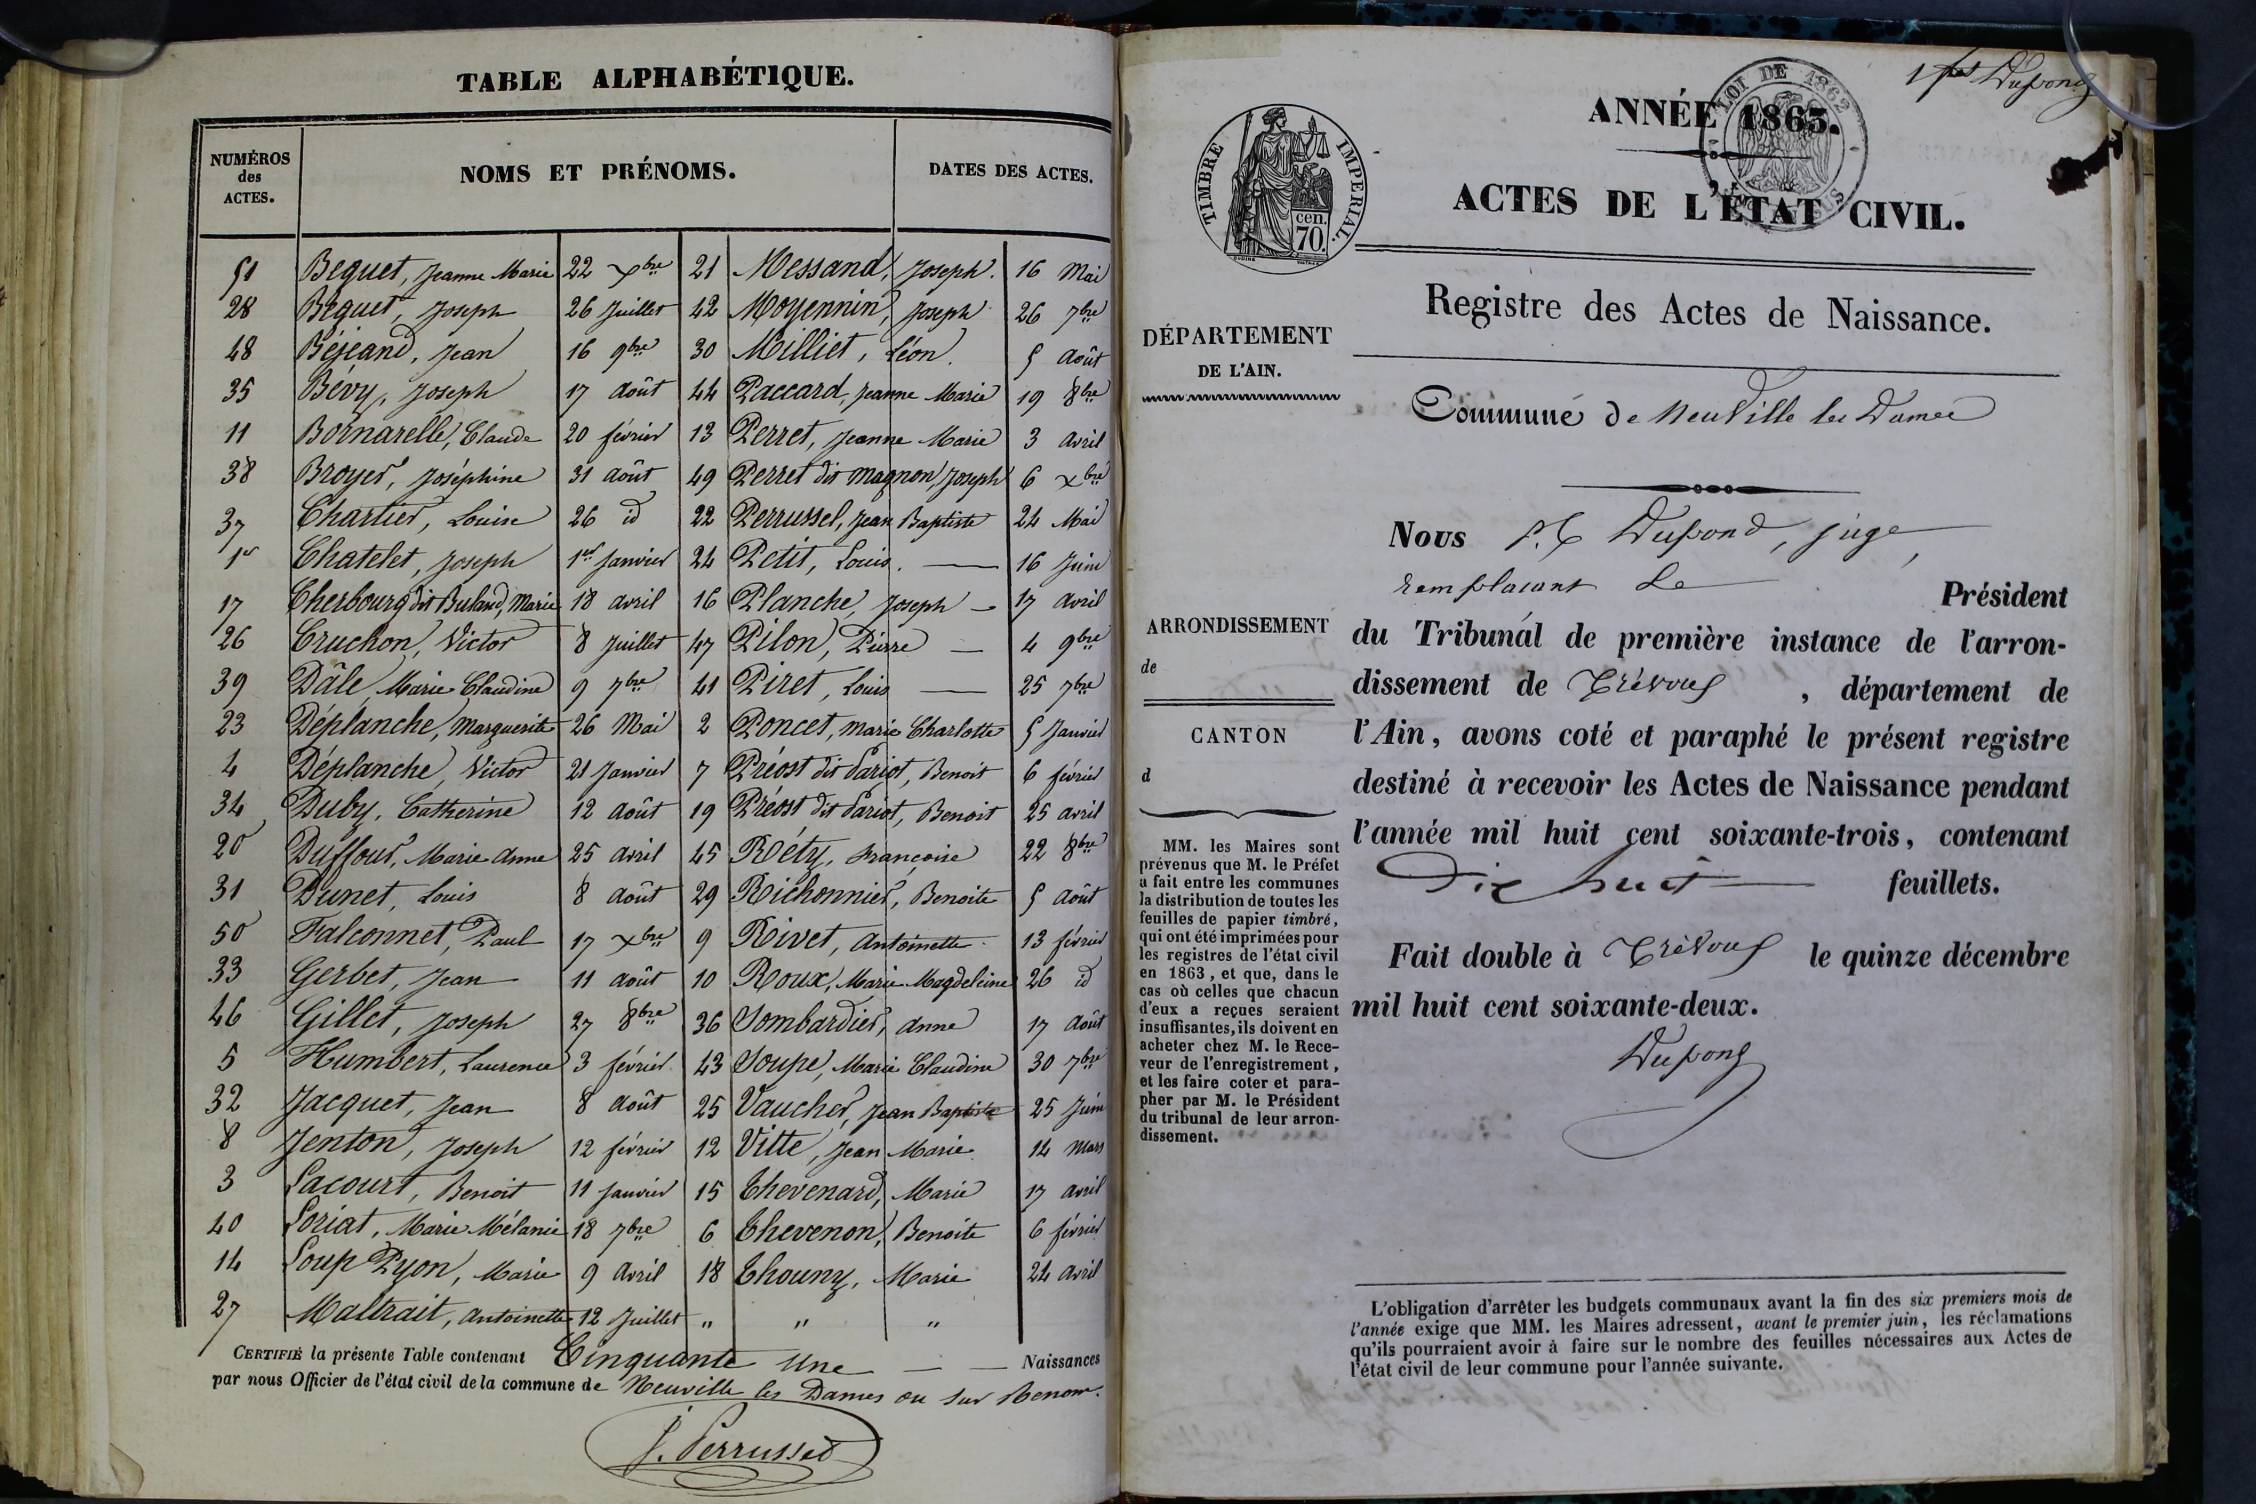 TABLE ALPHABÉTIQUE.
NUMÉROS des ACTES. NOMS ET PRÉNOMS. DATES DES ACTES.
51 Beguet, Jeanne Marie 22 xbre 21 Messand, Joseph. 16 Mai
28 Béguet, Joseph 26 Juillet 42 Moyennin, Joseph 26 7bre
48 Béjeand, Jean 16 9bre 30 Milliet, Léon. 5 Août
35 Bévy, Joseph 17 Août 44 Paccard, Jeanne Marie 19 8bre
11 Bornarelle, Claude 20 février 13 Perret, Jeanne Marie 3 Avril
38 Broyer, Joséphine 31 Août 49 Perret dit Magnon, Joseph 6 xbre
37 Chartier, Louise 26 id 22 Perrussel, Jean Baptiste 24 Mai
1er Chatelet, Joseph 1er Janvier 24 Petit, Louis. — 16 Juin
17 Cherbourg dit Buland, Marie 18 avril 16 Planche, Joseph — 17 Avril
26 Cruchon, Victor 8 Juillet 47 Pilon, Pierre — 4 9bre
39 Dâle Marie Claudine 9 7bre 41 Piret, Louis — 25 7bre
23 Déplanche, Marguerite 26 Mai 2 Poncet, Marie Charlotte 5 Janvier
4 Déplanche, Victor 21 Janvier 7 Préost dit Pariot, Benoit 6 février
34 Duby, Catherine 12 Août 19 Préost dit Pariot, Benoit 25 avril
20 Duffour, Marie Anne 25 Avril 45 Réty, Françoise 22 8bre
31 Dunet, Louis 8 Août 29 Richonnier, Benoite 5 Août
50 Falconnet, Paul 17 xbre 9 Rivet, Antoinette 13 février
33 Gerbet, Jean 11 Août 10 Roux, Marie Magdeleine 26 id
46 Gillet, Joseph 27 8bre 36 Sombardier, Anne 17 Août
5 Humbert, Laurence 3 février 43 Soupe, Marie Claudine 30 7bre
32 Jacquet, Jean 8 Août 25 Vaucher, Jean Baptiste 25 Juin
8 Jenton, Joseph 12 février 12 Vitte, Jean Marie 14 Mars
3 Lacourt, Benoit 11 Janvier 15 Thevenard, Marie 17 Avril
40 Loriat, Marie Mélanie 18 7bre 6 Thevenon, Benoite 6 février
14 Loup Pyon, Marie 9 Avril 18 Thouny, Marie 24 Avril
27 Maltrait, Antoinette 12 Juillet " " "
CERTIFIÉ la présente Table contenant Cinquante Une — — Naissances
par nous Officier de l'état civil de la commune de Neuville les Dames ou sur Renom.
J. Perrussel
1er Dupond
LOI DE 1862
TIMBRE IMPERIAL.
cen. 70.
ANNÉE 1863.
ACTES DE L'ÉTAT CIVIL.
Registre des Actes de Naissance.
DÉPARTEMENT
DE L'AIN.
Commune de Neuville les Dames
Nous Dupond, juge,
remplacant Le Président
ARRONDISSEMENT
de
CANTON
d
du Tribunal de première instance de l'arron-
dissement de Trévoux, département de
l'Ain, avons coté et paraphé le présent registre
destiné à recevoir les Actes de Naissance pendant
l'année mil huit cent soixante-trois, contenant
Dix huit — feuillets.
Fait double à Trévoux le quinze décembre
mil huit cent soixante-deux.
Dupond
MM. les Maires sont
prévenus que M. le Préfet
a fait entre les communes
la distribution de toutes les
feuilles de papier timbré,
qui ont été imprimées pour
les registres de l'état civil
en 1863, et que, dans le
cas où celles que chacun
d'eux a reçues seraient
insuffisantes, ils doivent en
acheter chez M. le Rece-
veur de l'enregistrement,
et les faire coter et para-
pher par M. le Président
du tribunal de leur arron-
dissement.
L'obligation d'arrêter les budgets communaux avant la fin des six premiers mois de
l'année exige que MM. les Maires adressent, avant le premier juin, les réclamations
qu'ils pourraient avoir à faire sur le nombre des feuilles nécessaires aux Actes de
l'état civil de leur commune pour l'année suivante.